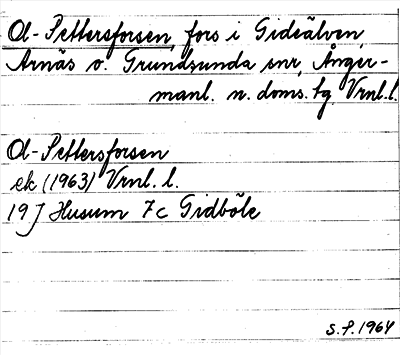 Ol-Pettersforsen, fors i Gideälven,
Arnäs o. Grundsunda snr, Ånger-
manl. n. doms. tg Vrnl.l.
Ol-Pettersforsen
ek (1963) Vrnl. l.
19 J Husum 7c Gidböle
S.F. 1964